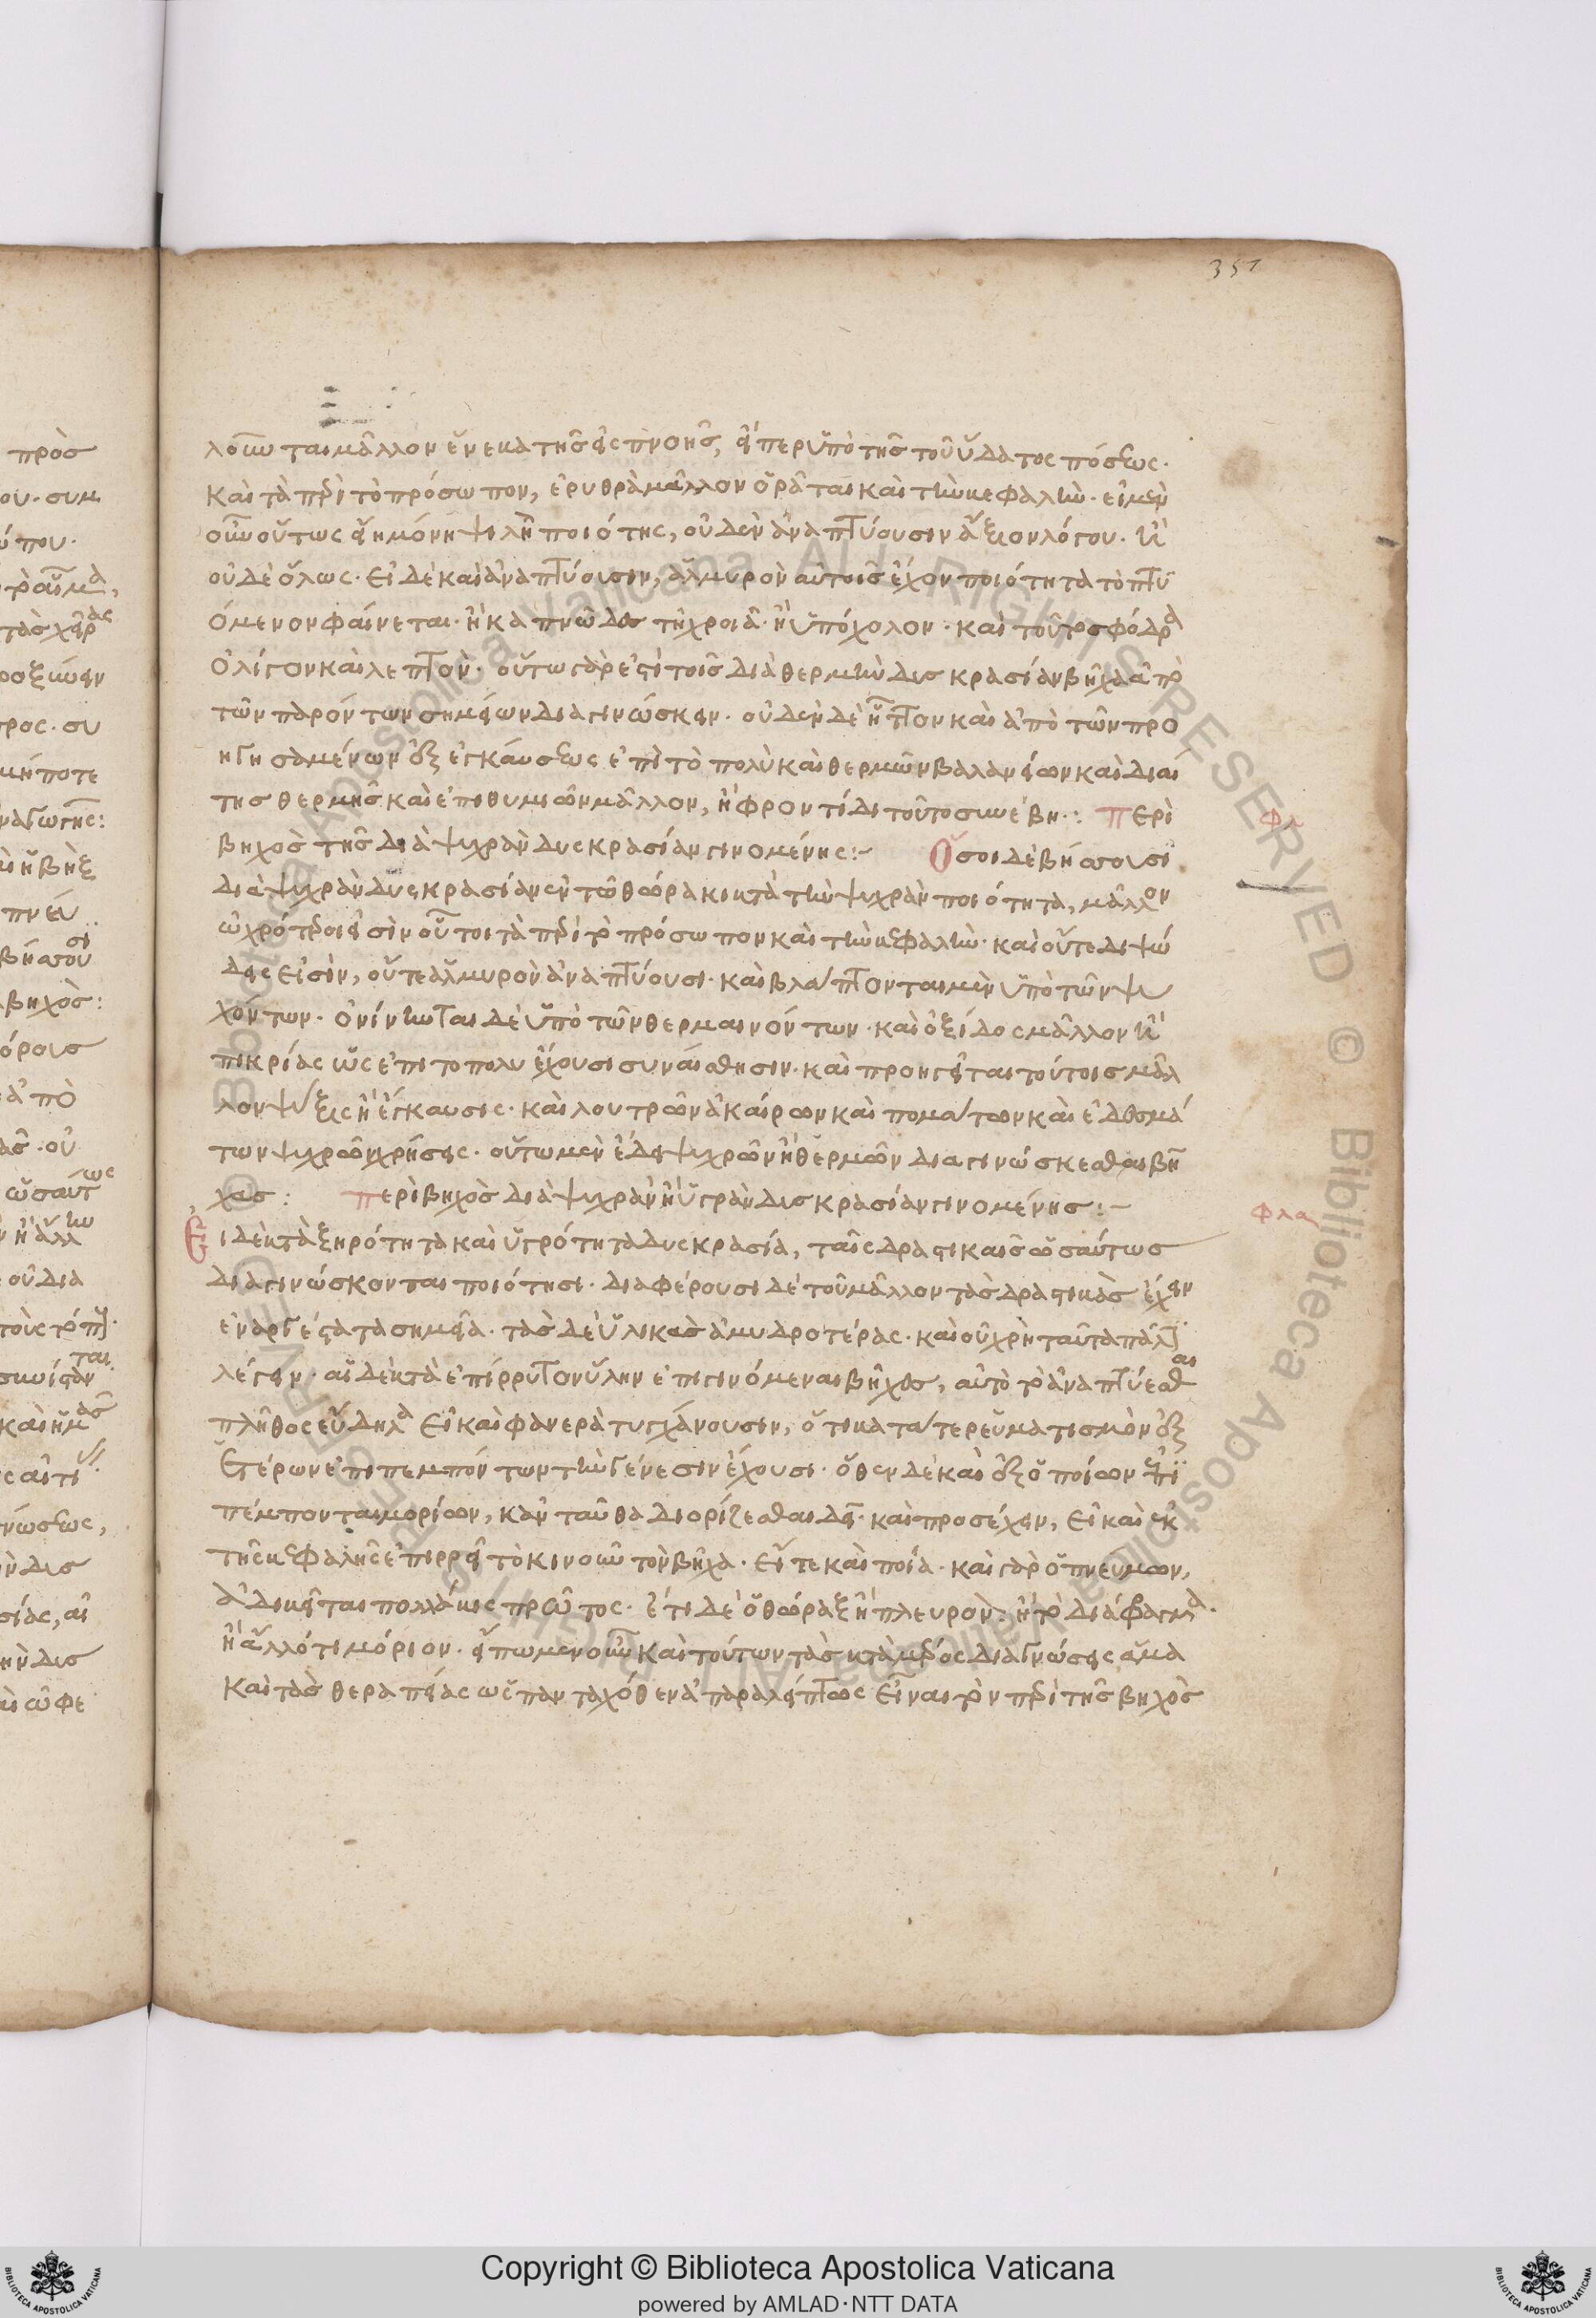 351
λοῦνται μᾶλλον ἕνεκα τῆς εἰσπνοῆς, εἴπερ ὑπὸ τῆς τοῦ ὕδατος πόσεως·
καὶ τὰ περὶ τὸ πρόσωπον, ἐρυθρὰ μᾶλλον ὁρᾶται καὶ τὴν κεφαλήν· εἰ μὲν
οὖν οὕτως εἴη μόνη ψιλὴ ποιότης, οὐδὲν ἀναπτύουσιν ἄξιον λόγου· ἢ
οὐδὲ ὅλως· εἰ δὲ καὶ ἀναπτύουσιν, ἁλμυρὸν αὐτοῖς ἔχον ποιότητα τὸ πτυ
όμενον φαίνεται· ἢ καπνῶδες τῆ χροιᾶ· ἢ ὑπόχολον· καὶ τοῦτο σφόδρα
ὀλίγον καὶ λεπτόν· οὕτω γὰρ ἐστὶ τοῖς διὰ θερμὴν δισκρασίαν βῆχα ἀπὸ
τῶν παρόντων σημείων διαγινώσκειν· οὐδὲν δὲ ἧττον καὶ ἀπὸ τῶν προ
ηγησαμένων ἐξ ἐγκαύσεως ἐπὶ τὸ πολὺ καὶ θερμῶν βαλανείων καὶ διαί
της θερμῆς καὶ ἐπὶ θυμιῶν μᾶλλον, ἢ φροντίδι τοῦτο συνέβη·: Περὶ
βηχὸς τῆς διὰ ψυχρὰν δυσκρασίαν γινομένης:- Ὅσοι δὲ βήσσουσι
διὰ ψυχρὰν δυσκρασίαν ἐν τῶ θώρακι κατὰ τὴν ψυχρὰν ποιότητα, μᾶλλον
ὠχρότεροι εἰσὶν οὗτοι τὰ περὶ τὸ πρόσωπον καὶ τὴν κεφαλήν· καὶ οὔτε διψώ
δεις εἰσὶν, οὔτε ἁλμυρὸν ἀναπτύουσι· καὶ βλάπτονται μὲν ὑπὸ τῶν ψυ
χόντων· ὀνίνηνται δὲ ὑπὸ τῶν θερμαινόντων· καὶ ὀξίδος μᾶλλον ἢ
πικρίας ὡς ἐπι το πολυ ἔχουσι συναίσθησιν· καὶ προηγεῖται τούτοις μᾶλ
λον ψύξις ἢ ἔγκαυσις· καὶ λουτρῶν ἀκαίρων καὶ πομάτων καὶ ἐδεσμά
των ψυχρῶν χρήσεις· οὕτω μὲν ἐδει ψυχρῶν ἢ θερμῶν διαγινώσκεσθαι βῆ
χας: Περὶ βηχὸς διὰ ψυχρὰν ἢ ὑγρὰν δισκρασίαν γινομένης:-
Εἰ δὲ κατὰ ξηρότητα καὶ ὑγρότητα δυσκρασία, ταῖς δραστικαῖς ὡσαύτως
διαγινώσκονται ποιότησι· διαφέρουσι δὲ τοῦ μᾶλλον τὰς δραστικὰς ἔχειν
ἐναργέστατα σημεῖα· τὰς δὲ ὑλικὰς ἀμυδροτέρας· καὶ οὐ χρὴ ταῦτα πάλιν
λέγειν· αἱ δὲ κατὰ ἐπίρρυτον ὕλην ἐπιγινόμεναι βῆχες, αὐτὸ τὸ ἀναπτύεσθαι
πλῆθος εὔδηλα εἰ καὶ φανερὰ τυγχάνουσιν, ὅτι κατά τε ρευματισμὸν ἐξ
ἑτέρων ἐπιπεμπόντων τὴν γένεσιν ἔχουσι· ὅθεν δὲ καὶ ἐξ ὁποίων ἐπι
πέμπονται μορίων, κἀν ταῦθα διορίζεσθαι δεῖ· καὶ προσέχειν, εἰ καὶ ἐκ
τῆς κεφαλῆς ἐπιρρεῖ τὸ κινοῦν τὸν βῆχα· εἴτε καὶ ποία· καὶ γὰρ ὁ πνεύμων,
ἀδικεῖται πολλάκις πρῶτος· ἔτι δὲ ὁ θώραξ ἢ πλευρὸν· ἢ τὸ διάφραγμα·
ἢ ἄλλό τι μόριον· εἴπωμεν οὖν καὶ τούτων τὰς κατὰ μέρος διαγνώσεις ἅμα
καὶ τὰς θεραπείας ὡς πανταχόθεν ἀπαραλείπτως εἶναι τὸν περὶ τῆς βηχὸς
φλα
Copyright © Biblioteca Apostolica Vaticana
powered by AMLAD·NTT DATA